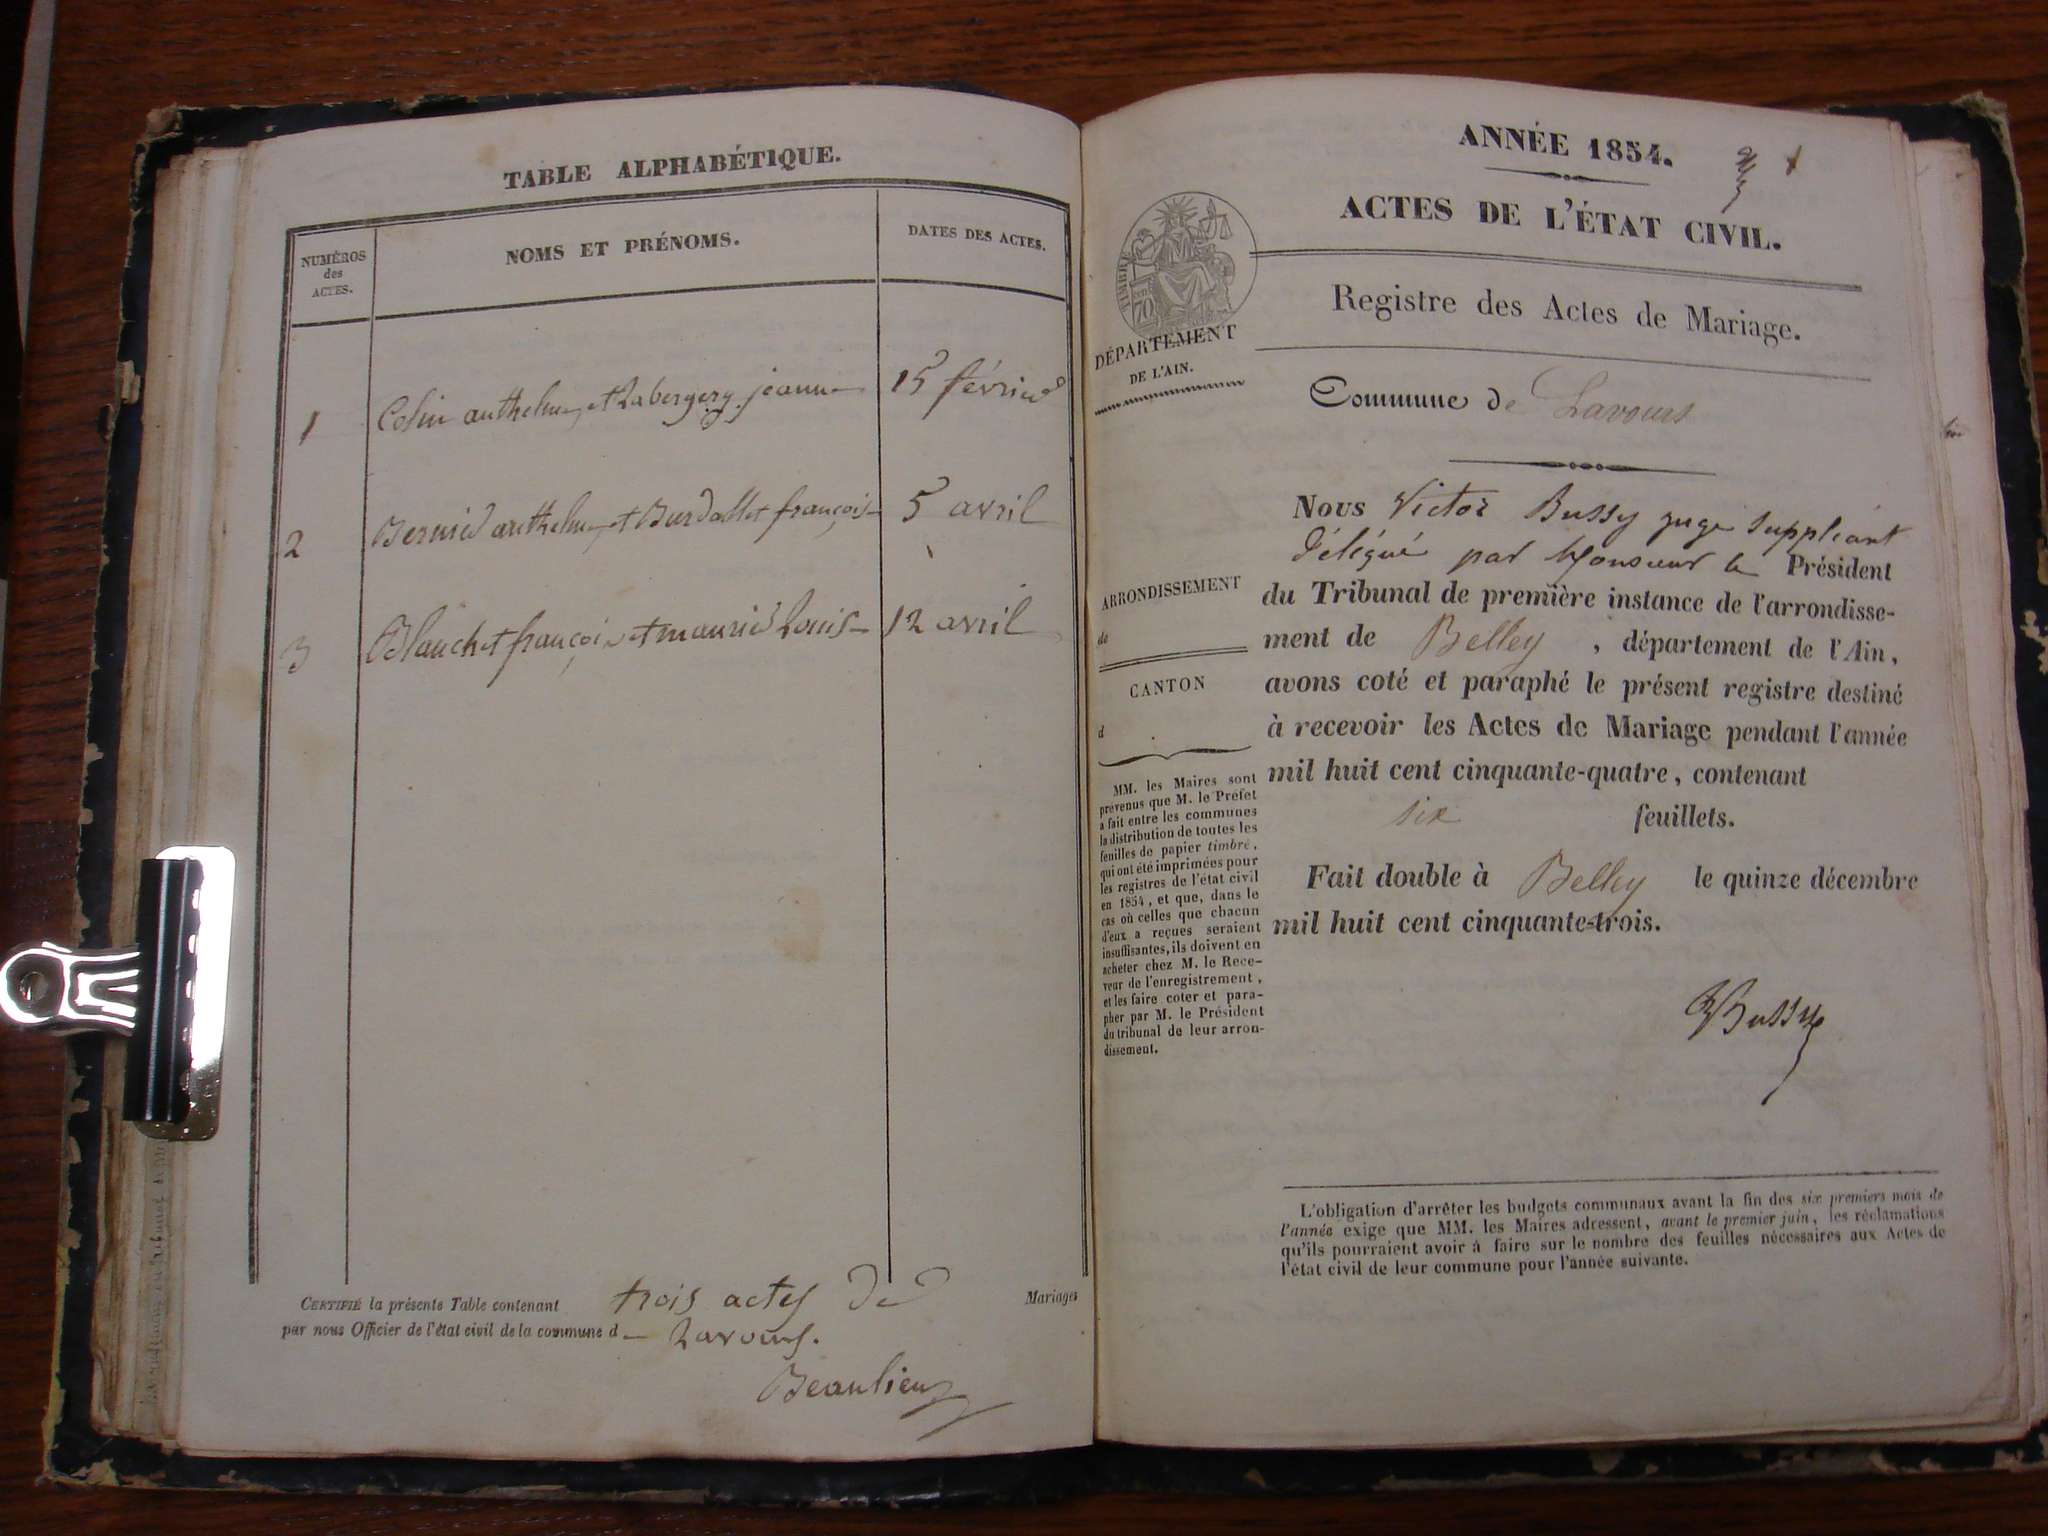 TABLE ALPHABÉTIQUE.
NUMÉROS
des
ACTES.
NOMS ET PRÉNOMS.
DATES DES ACTES.
1 Colin anthelme et Labergery jeanne 15 février
2 Bernier anthelme et Burdallet françoise 5 avril
3 Blanchet françoise et maurier Louis 12 avril
CERTIFIÉ la présente Table contenant trois actes de Mariages
par nous Officier de l'état civil de la commune de Lavours.
Beaulieu
ANNÉE 1854.
ACTES DE L'ÉTAT CIVIL.
TIMBRE
70
Registre des Actes de Mariage.
DÉPARTEMENT
DE L'AIN.
Commune de Lavours
Nous Victor Bussy juge suppléant
délégué par Monsieur le Président
du Tribunal de première instance de l'arrondisse-
ment de Belley, département de l'Ain,
avons coté et paraphé le présent registre destiné
à recevoir les Actes de Mariage pendant l'année
mil huit cent cinquante-quatre, contenant
six feuillets.
Fait double à Belley le quinze décembre
mil huit cent cinquante-trois.
VBussy
ARRONDISSEMENT
de
CANTON
d
MM. les Maires sont
prévenus que M. le Préfet
a fait entre les communes
la distribution de toutes les
feuilles de papier timbré,
qui ont été imprimées pour
les registres de l'état civil
en 1854, et que, dans le
cas où celles que chacun
d'eux a reçues seraient
insuffisantes, ils doivent en
acheter chez M. le Rece-
veur de l'enregistrement,
et les faire coter et para-
pher par M. le Président
du tribunal de leur arron-
dissement.
L'obligation d'arrêter les budgets communaux avant la fin des six premiers mois de
l'année exige que MM. les Maires adressent, avant le premier juin, les réclamations
qu'ils pourraient avoir à faire sur le nombre des feuilles nécessaires aux Actes de
l'état civil de leur commune pour l'année suivante.